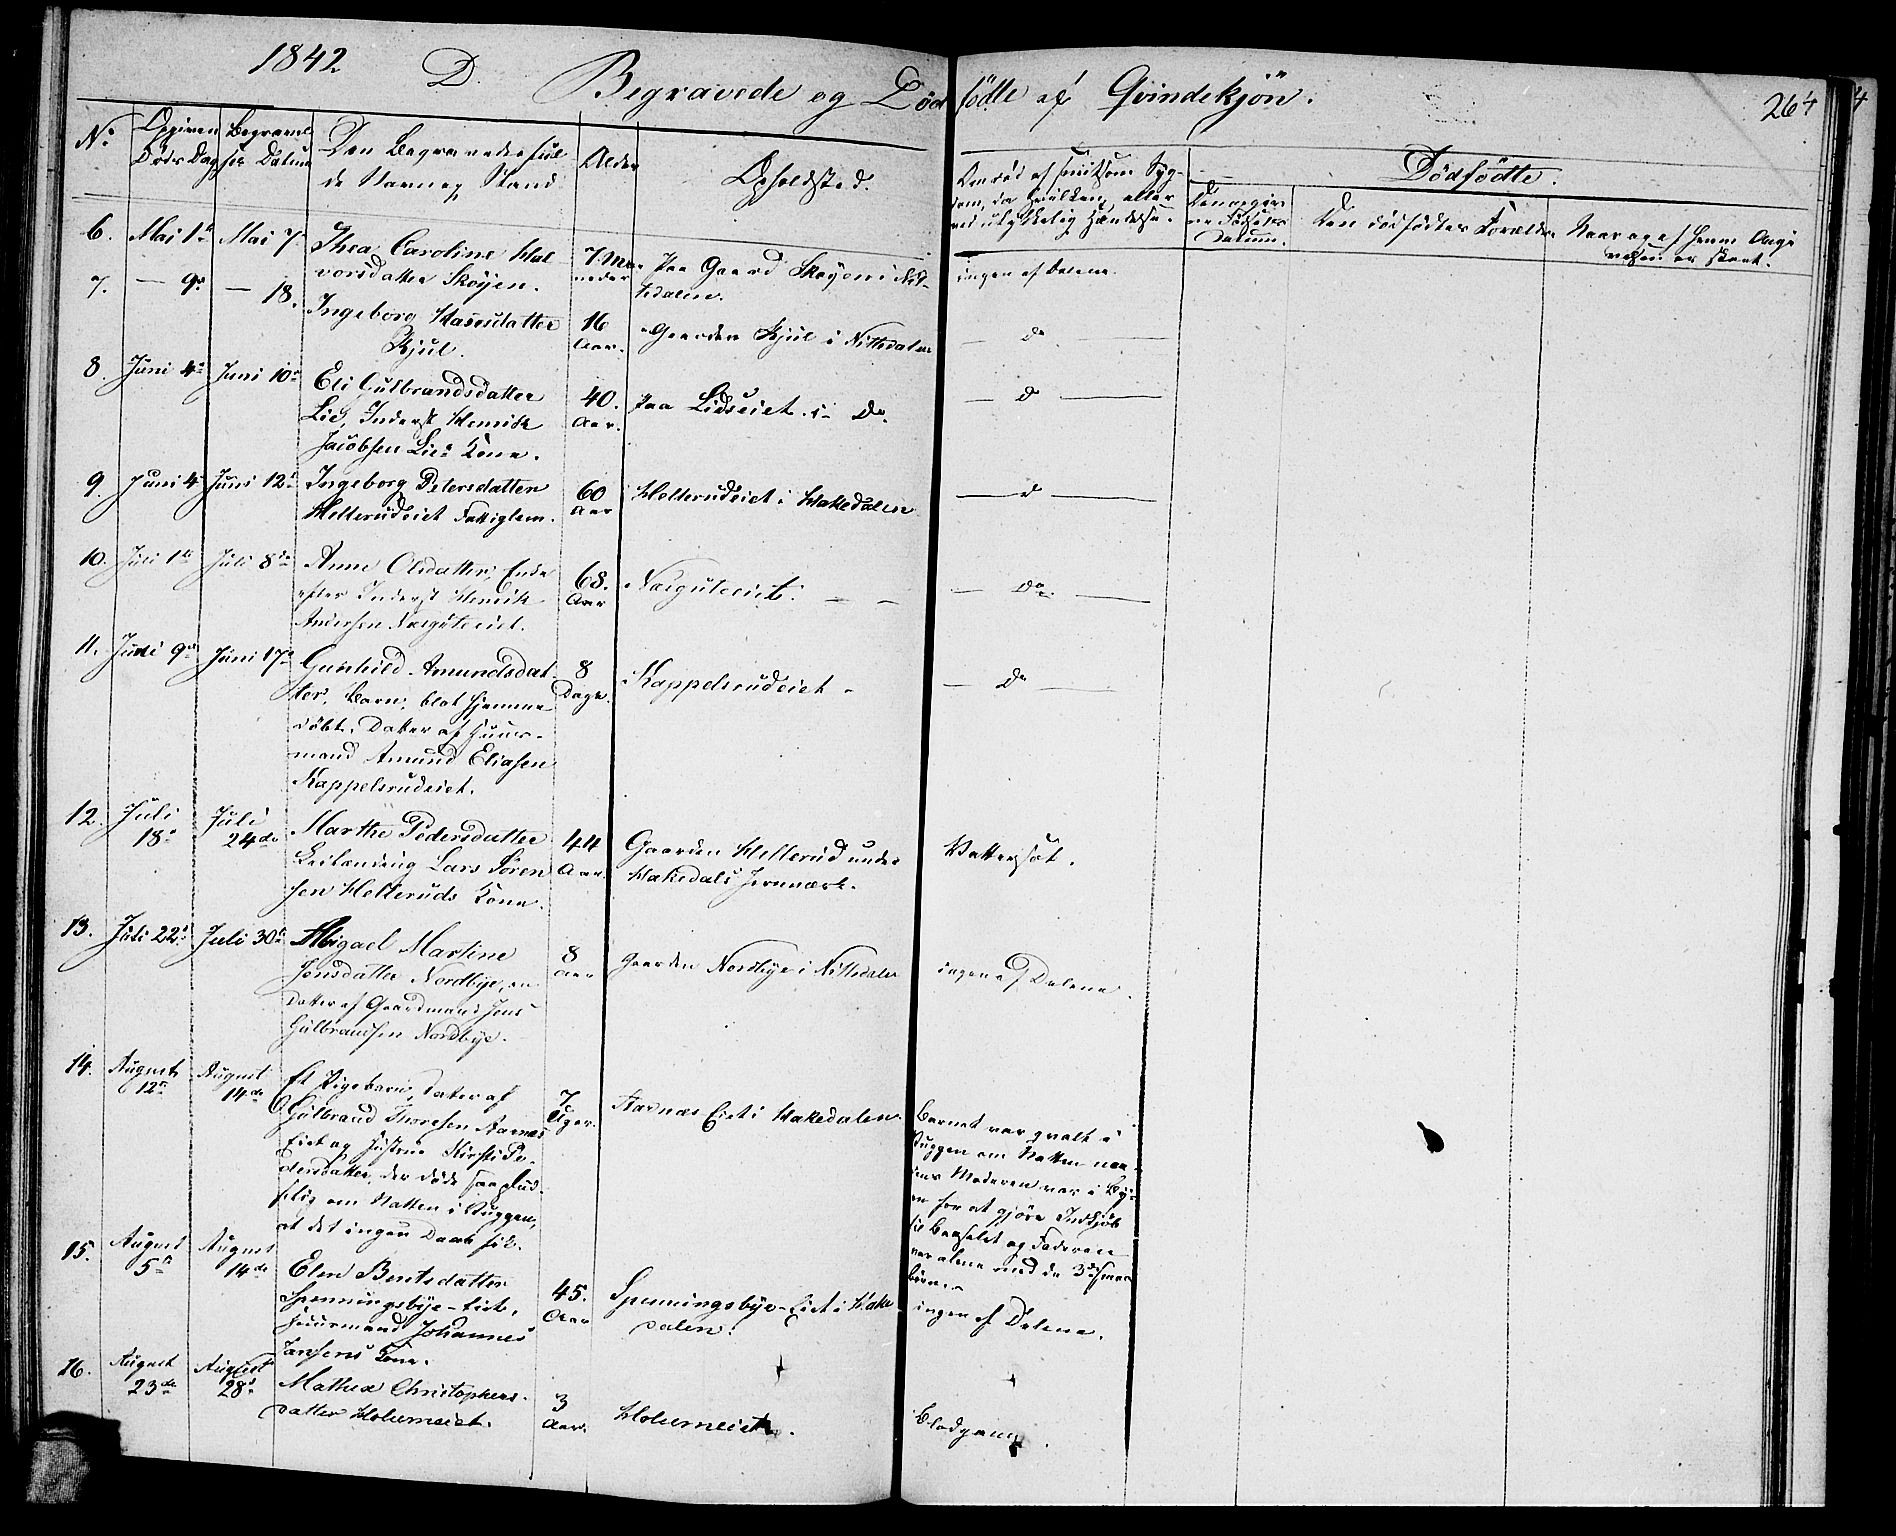 1842 D. Begravede og Dødfødte af Qvindekjøn. 264
No
Opgiven Døds Dag
Begravelses Datum
Den Begravedes fulde Navn og Stand
Alder
Opholdsted.
Om død af smitsom Sygdom, da hvilken, eller ved ulykkelig Hændelse.
Dødfødte.
Den opgivne Fødsels Datum.
Den dødfødtes Forældre
Naar og af hvem Angivelsen er skeet.
6. Mai 1te Mai 7. Thea Caroline Halvorsdatter Skøyen. 7 Maaneder Paa Gaard Skøyen i Nittedalen. ingen af Delene.
7. — 9de — 18. Ingeborg Hansdatter Kjul. 16 Aar. Gaarden Kjul i Nittedalen — do —
8. Juni 4de Juni 10de Eli Gulbrandsdatter
Lie, Inderst Henrik
Jacobsen Lies Kone. 40. Aar. Paa Lidseiet i Do. — do —
9. Juni 4 Juni 12te Ingeborg Petersdatter
Helterudeiet Fattiglem. 60 Aar Helterudeiet i Hakedalen — do —
10. Juli 1te Juli 8de Anne Olsdatter, Enke
efter Inderst Henrik
Andersen 68. Aar — do —
11. Juni 9de Juni 17de Gunhild Amundsdat
ter, Barn, blot hjemme
døbt, Datter af Huus-
mand Amund Eliasen
Kappelsrudeiet. 8 Dage. Kappelsrudeiet — Do —
12. Juli 18de Juli 24de Marthe Pedersdatter
Leilænding Lars Søren
sen Helleruds Kone. 44 Aar. Gaarden Hellerud under
Hakedals Jernværk. Vattersot.
13. Juli 22de Juli 30te Abigael Martine
Jensdatter Nordbye, en
Datter af Gaardmand Jens
Gulbrandsen Nordbye. 8 Aar Gaarden Nordbye i Nittedalen ingen af Delene.
14. August 12te August 14de Et Pigebarn, Datter af
Gulbrand Thoresen Aarnæs
Eiet og Hustrue Kirsti Pe-
dersdatter, der døde saa plud-
selig om Natten i Vuggen,
at det ingen Daab fik. 7 Uger. Aarnæs Eiet i Hakedalen. Barnet var qvalt i
Vuggen om Natten me-
dens Moderen var i Bye-
en for at gjøre Indkjøb
til Barselet og Faderen
var alene med de 3de smaa
Børn.
15. August 5te August 14de Elen Berntsdatter
Spenningsbye-Eiet,
Huusmand Johannes
Jansens Kone. 45. Aar Spenningsbye-Eiet i Hake
dalen. ingen af Delene.
16. August 23de August 28de Mathea Christophers-
datter Holumeiet. 3 Aar. Holumeiet. Blodgang.